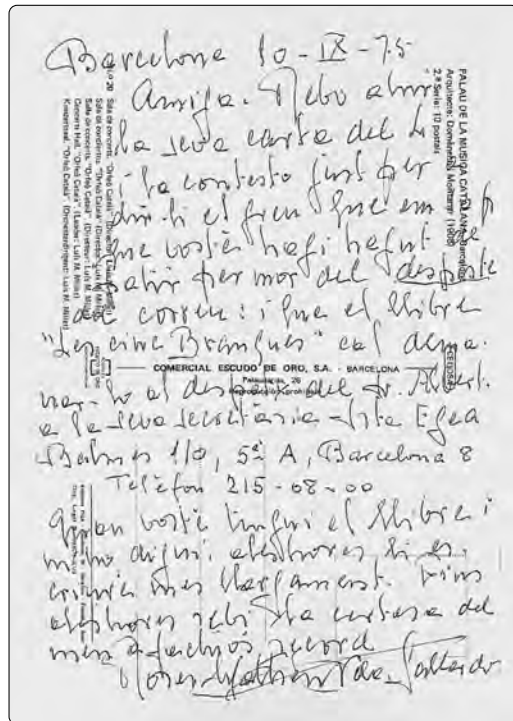 Barcelona 10-IX-75
Amiga. Rebo ahir
la seva carta del 4
i la contesto just per
dir-li el greu que em fa
que vostè hagi hagut de
patir per mor del despiste
de correu: i que el llibre
"Les cinc Branques" cal dema-
nar-ho al despatx del Sr. Albert.
a la seva secretària - Srta Egea
Balmes 110, 5è A, Barcelona 8
Telèfon 215-08-00
Quan vostè tingui el llibre i
m'ho digui aleshores li es-
criuré més llargament. Fins
aleshores rebi la certesa del
meu afectuós record
PALAU DE LA MUSICA CATALANA - Barcelona
Arquitecto: Doménech Montaner (1908)
2.ª Serie: 10 postals
N.o 20 Sala de concerts. "Orfeó Català" (Director: Lluís M. Millet)
Sala de conciertos. "Orfeó Català" (Director: Luis M. Millet)
Salle de concerts. "Orfeó Català" (Directeur: Luis M. Millet)
Concerts Hall. "Orfeó Català" (Leader: Luis M. Millet)
Konzertsaal. "Orfeó Català" (Orchesterdirigent: Luis M. Millet)
COMERCIAL ESCUDO DE ORO, S.A. - BARCELONA
Palaudarias, 26
Reproducción prohibida